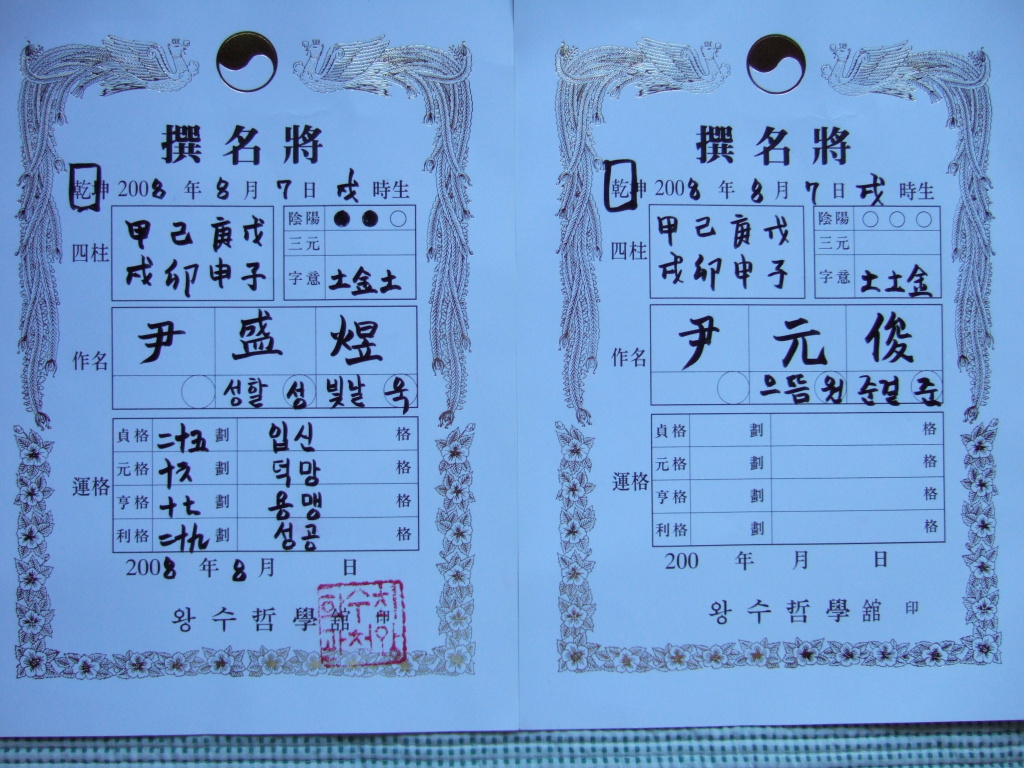 撰名將
乾坤 2008 年 8 月 7 日 戌 時生
四柱
甲 己 庚 戊
戌 卯 申 子
陰陽 ●●○
三元
字意 土金土
作名
尹 盛 煜
성할 성 빛날 욱
運格
貞格 二十五 劃 입신 格
元格 十六 劃 덕망 格
亨格 十七 劃 용맹 格
利格 二十九 劃 성공 格
2008 年 8 月 日
왕수哲學舘 印
撰名將
乾坤 2008 年 8 月 7 日 戌 時生
四柱
甲 己 庚 戊
戌 卯 申 子
陰陽 ○○○
三元
字意 土土金
作名
尹 元 俊
으뜸 원 준걸 준
運格
貞格 劃 格
元格 劃 格
亨格 劃 格
利格 劃 格
200 年 月 日
왕수哲學舘 印